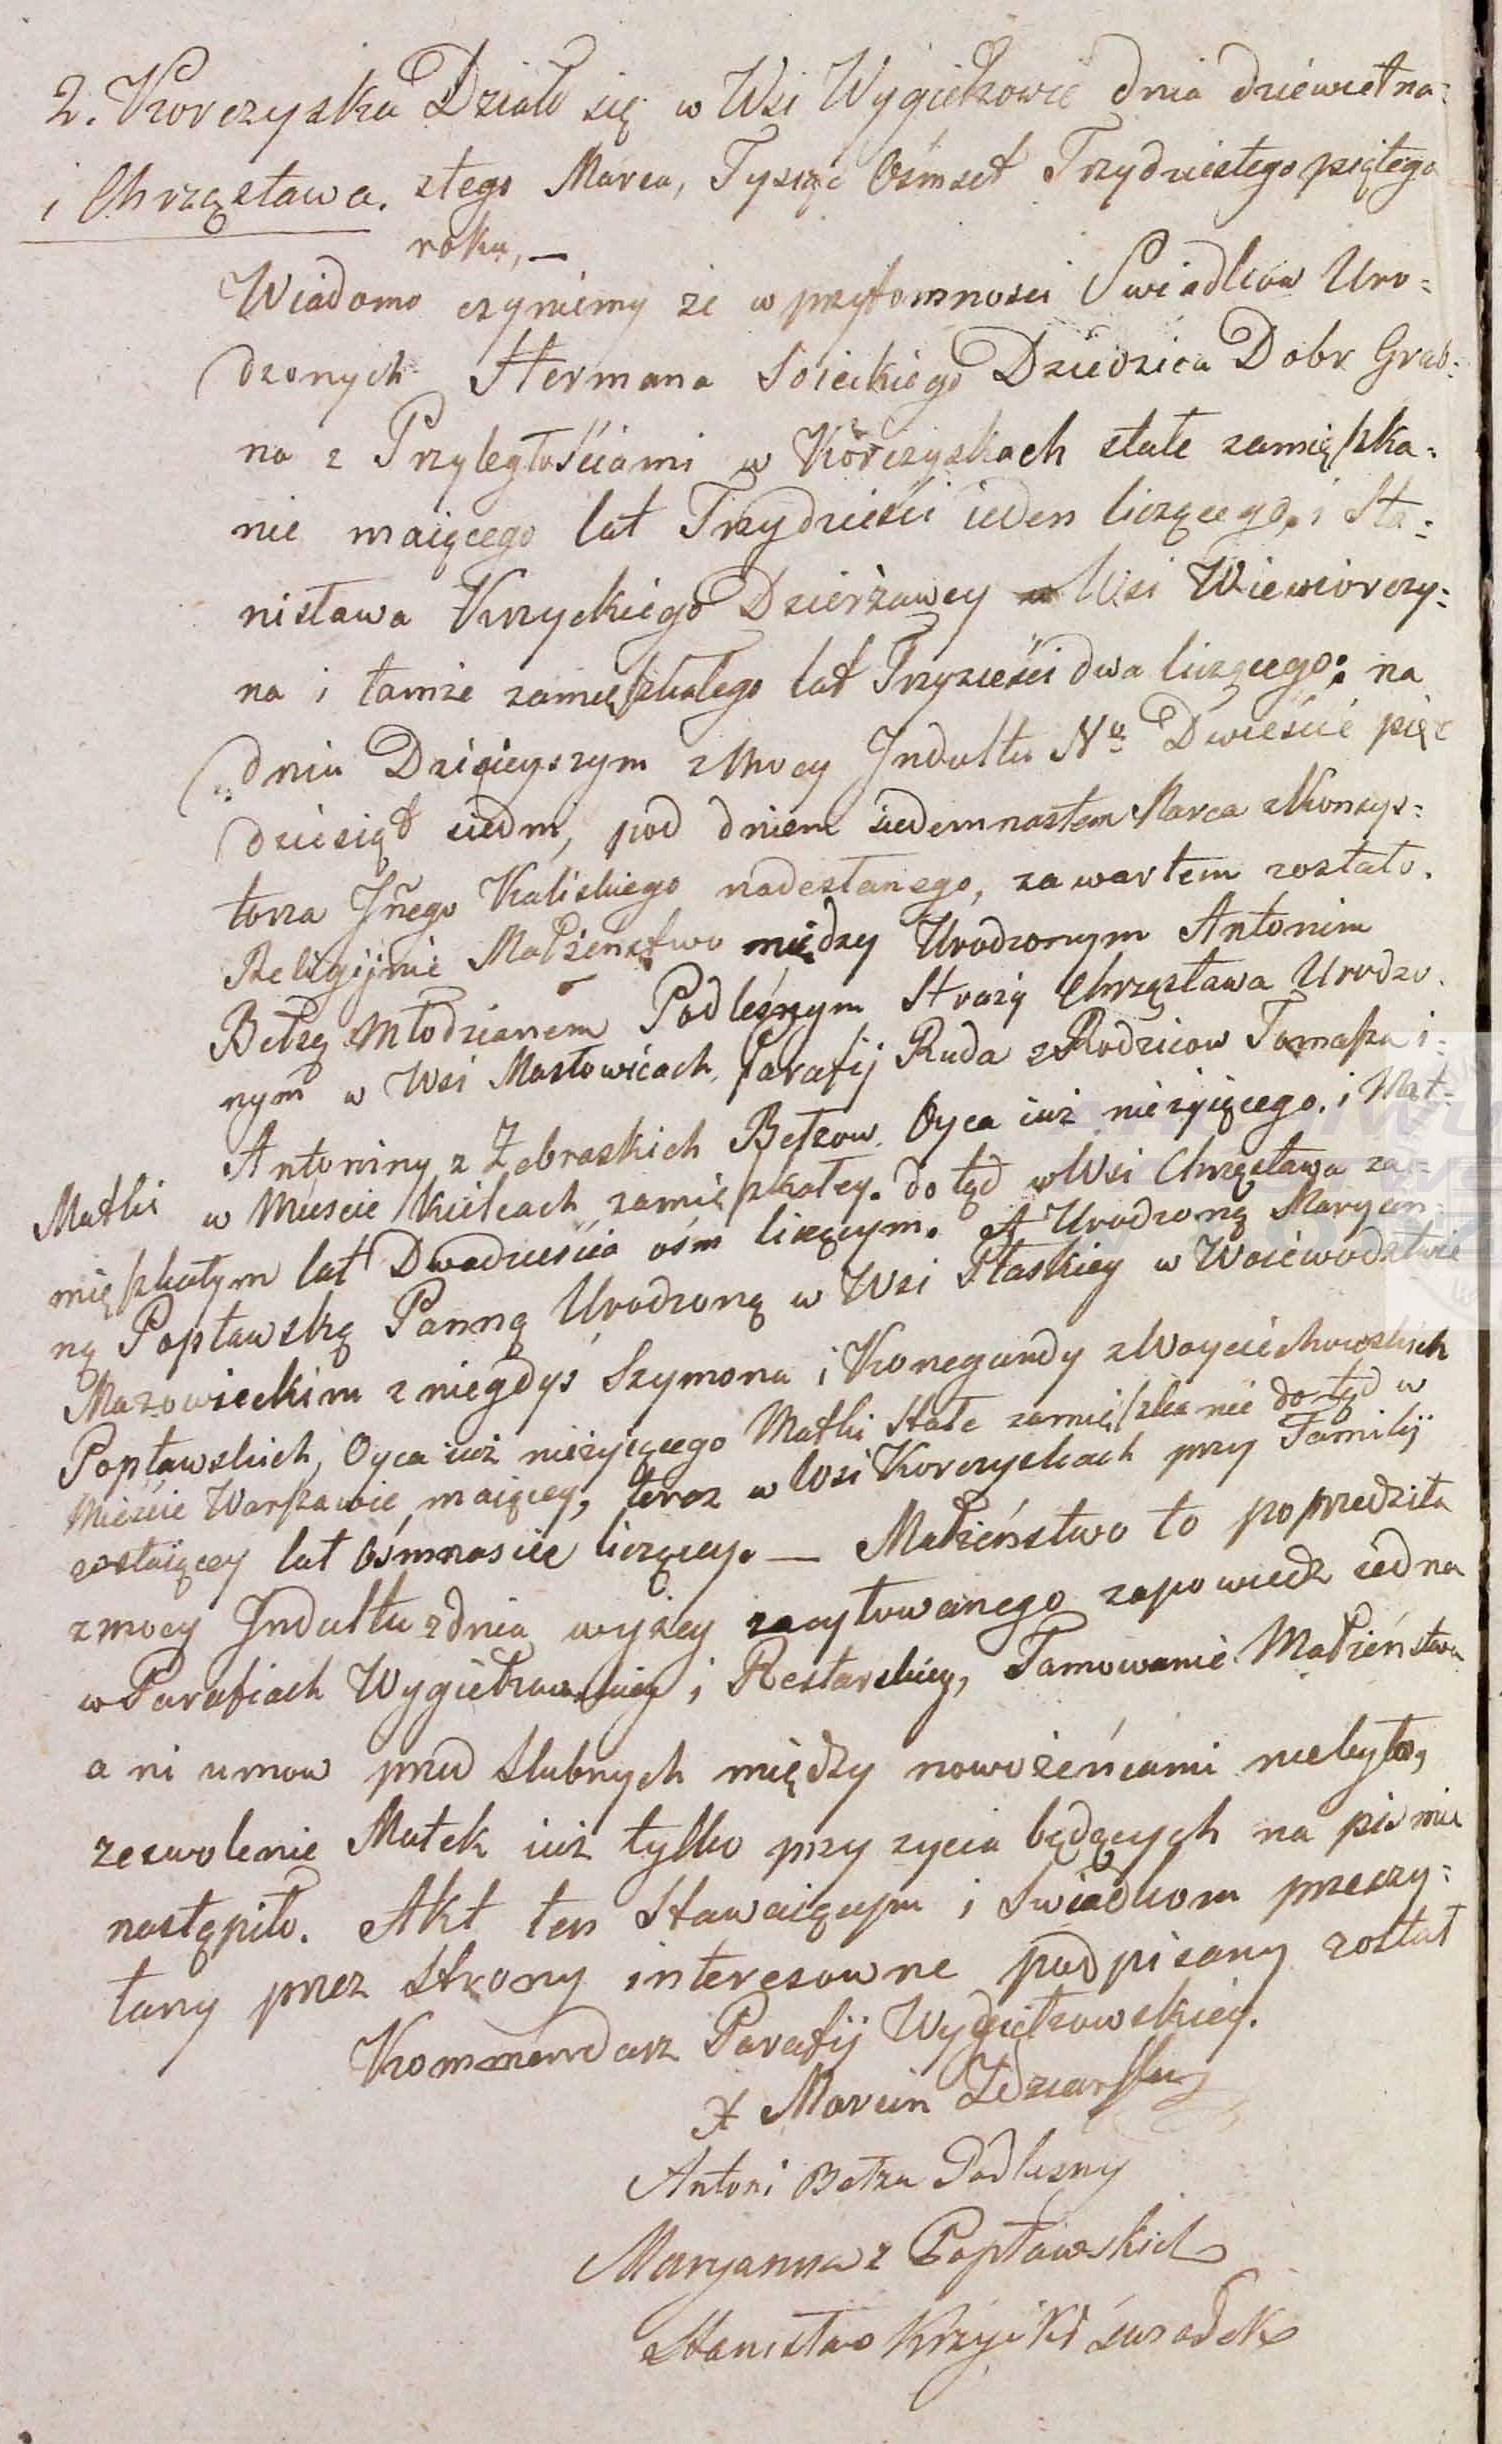 2. Korczyska Działo się w Wsi Wygiełzowie dnia dziewietna=
i Chrząstawa. stego Marca, Tysiąc Ośmset Trzydziestego piątego
roku, —
Wiadomo czyniemy że w przytomności Swiadków Uro=
dzonych Hermana Soieckiego Dziedzica Dobr Grab=
na z Przyległościami w Korczyskach stałe zamięszka=
nie maiącego lat Trzydzieści ieden liczącego, i Sta=
nisława Krzyckiego Dzierżawcy Wsi Wiewiorczy=
na i tamże zamięszkałego lat Trzyzieści dwa liczącego; na
dniu Dzisieyszym z Mocy Indultu No Dwieście pięć
dziesiąt siedm, pod dniem siedemnastem Marca z Konsys=
torza Jńego Kaliskiego nadesłanego, zawartem zostało.
Religijnie Małżeństwo między Urodzonym Antonim
Bełzą Młodzianem Podleśnym Straży Chrząstawa Urodzo=
nym w Wsi Masłowicach, Parafij Ruda z Rodzicow Tomasza i=
Antoniny z Żebraskich Bełzow. Oyca iuż nieżyiącego. i Mat=
Matki w Mieście Kielcach zamięszkałey. do tąd w Wsi Chrząstawa za=
mięszkałym lat Dwadzieścia ośm liczącym. A Urodzoną Maryan=
ną Popławską Panną Urodzoną w Wsi Płaskiey w Woiewodztwie
Mazowieckim z niegdyś Szymona i Konegundy z Woyciechowskich
Popławskich, Oyca iuż nieżyiącego Matki Stałe zamięszkanie do tąd w
Mieście Warszawie maiącey, teraz w Wsi Korczyskach przy Familij
zostaiącey lat Ośmnaście liczącey. — Małżeństwo to poprzedziła
z mocy Indultu z dnia wyżey zacytowanego zapowiedz iedna
w Parafiach Wygiełzowskiey i Restarskiey, Tamowanie Małżeństwa
ani umow przed Slubnych między nowożeńcami niebyło,
zezwolenie Matek iuż tylko przy zycia będących na pismie
nastąpiło. Akt ten Stawaiącym i Swiadkom przeczy=
tany przez Strony interesowne podpisany został
Kommendarz Parafij Wygiełzowskiey.
X Marcin Zdziarski
Antoni Bełza Podlesny
Maryanna z Popławskich
Stanisław Krzycki Swiadek